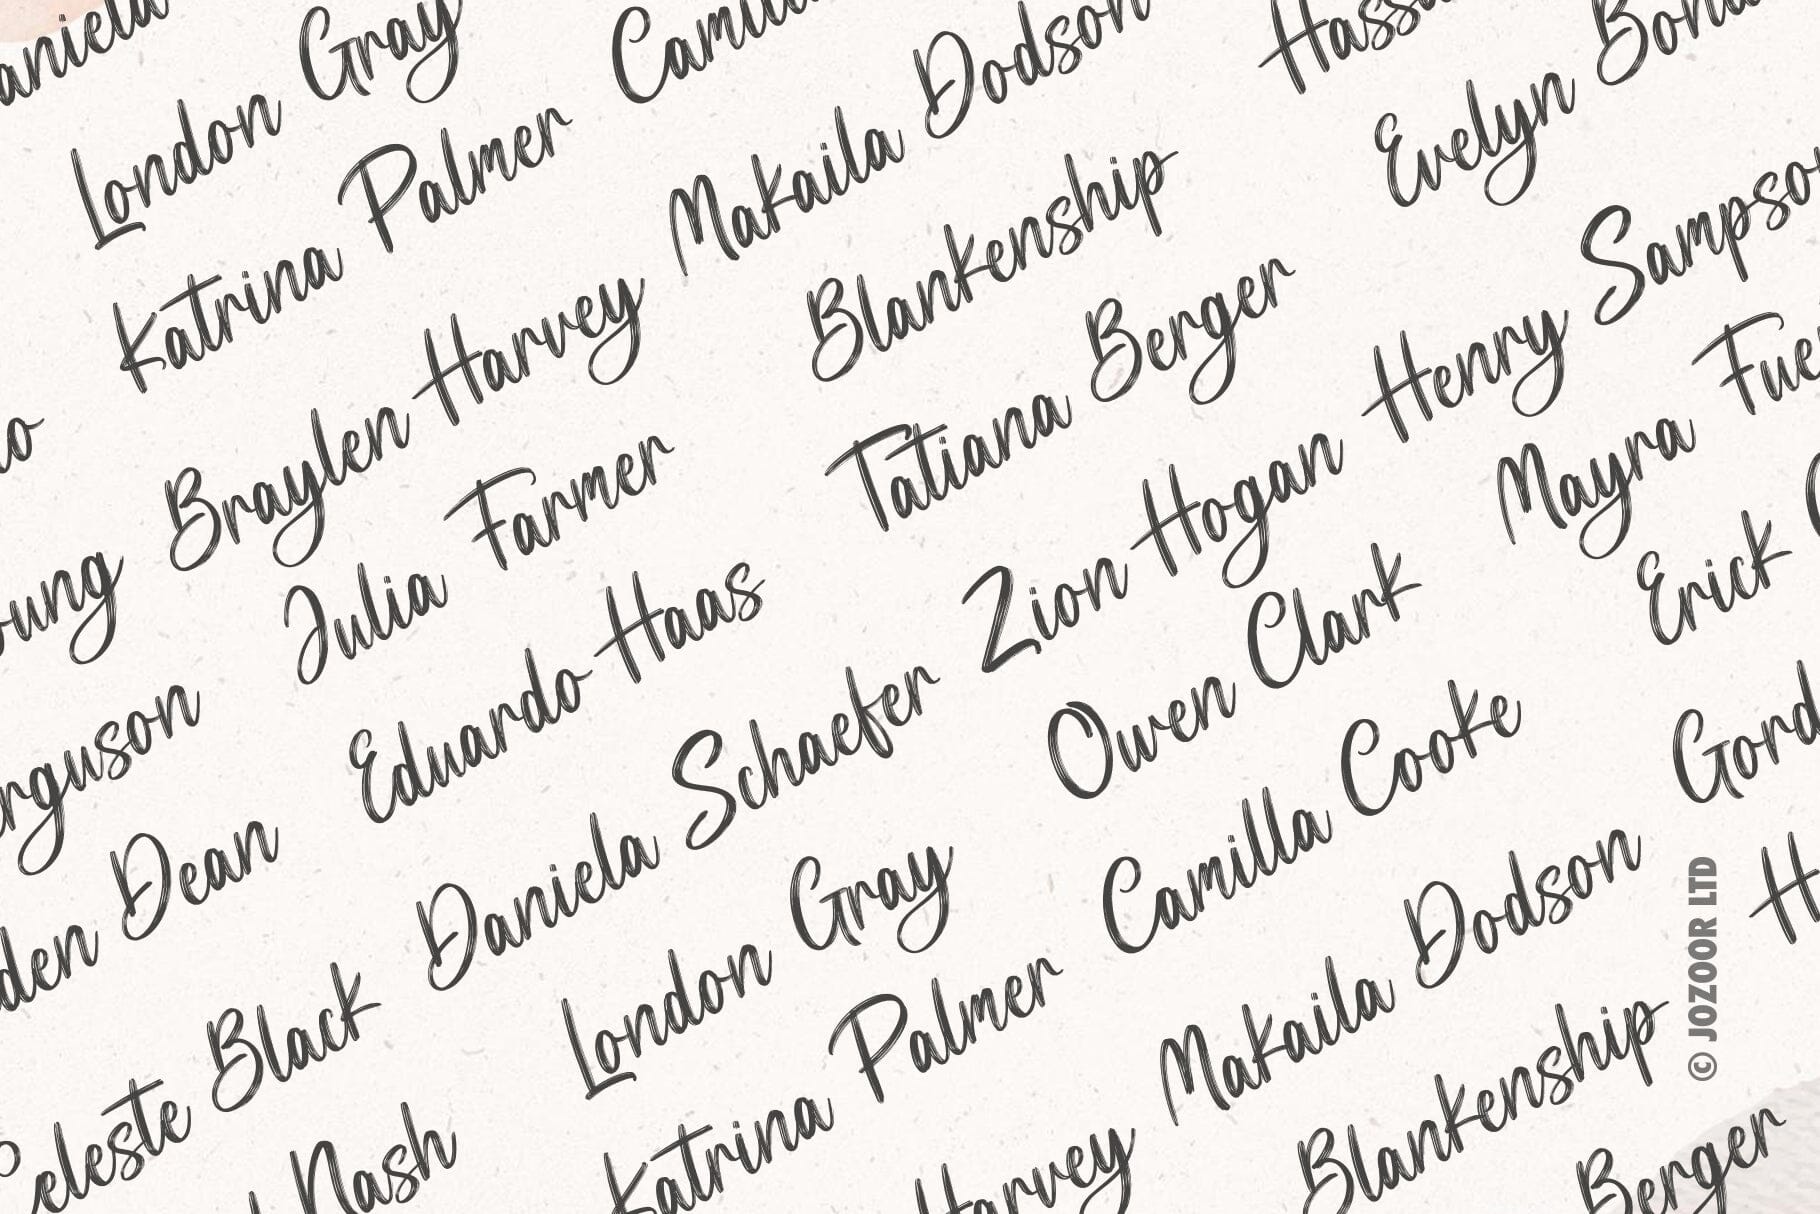 aniela
London Gray
o Katrina Palmer Camilla
oung Braylen Harvey Makaila Dodson
rguson Julia Farmer Blankenship Hassa
den Dean Eduardo Haas Tatiana Berger Evelyn Bond
Celeste Black Daniela Schaefer Zion Hogan Henry Sampson
Nash London Gray Owen Clark Mayra Fue
Katrina Palmer Camilla Cooke Erick
Harvey Makaila Dodson Gord
Blankenship H
Berger
© JOZOOR LTD